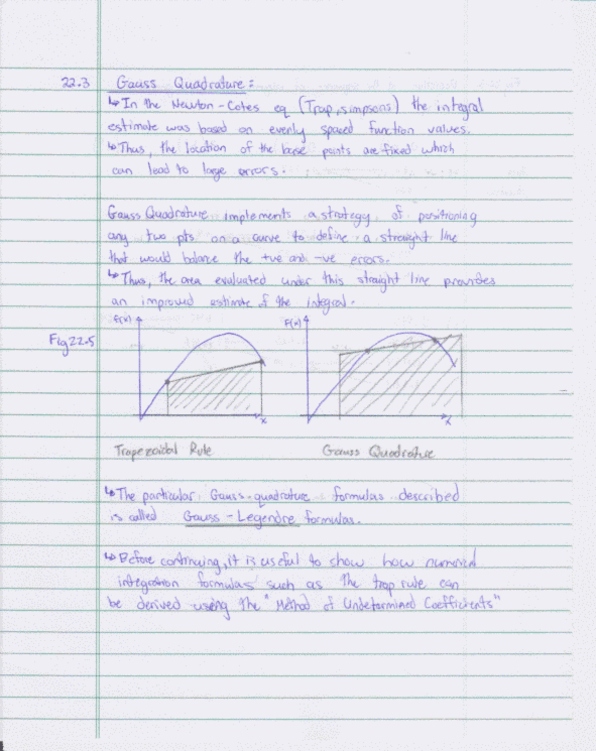 22.3 Gauss Quadrature:
↳ In the Newton-Cotes eq (Trap, simpsons) the integral
estimate was based on evenly spaced function values.
↳ Thus, the location of the base points are fixed which
can lead to large errors.
Gauss Quadrature implements a strategy of positioning
any two pts on a curve to define a straight line
that would balance the +ve and -ve errors.
↳ Thus, the area evaluated under this straight line provides
an improved estimate of the integral.
Fig 22.5
F(x)
x
F(x)
x
Trapezoidal Rule
Gauss Quadrature
↳ The particular Gauss-quadrature formulas described
is called Gauss-Legendre formulas.
↳ Before continuing, it is useful to show how numerical
integration formulas such as the trap rule can
be derived using the "Method of Undetermined Coefficients"